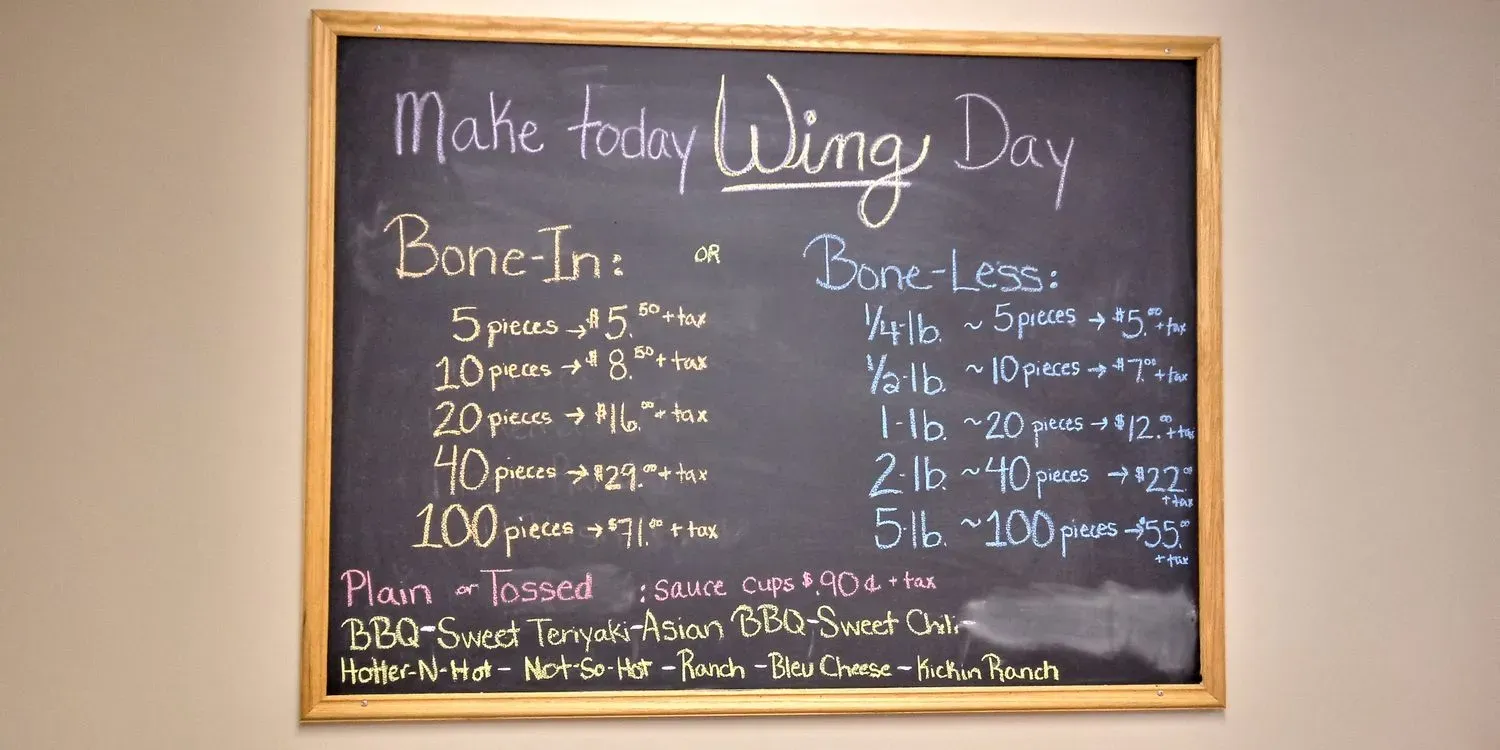 Make today Wing Day
Bone-In: OR Bone-Less:
5 pieces → $5.50 + tax
10 pieces → $8.50 + tax
20 pieces → $16.00 + tax
40 pieces → $29.00 + tax
100 pieces → $71.00 + tax
1/4-lb. ~ 5 pieces → $5.00 + tax
1/2-lb. ~ 10 pieces → $7.00 + tax
1-lb. ~ 20 pieces → $12.00 + tax
2-lb. ~ 40 pieces → $22.00 + tax
5-lb. ~ 100 pieces → $55.00 + tax
Plain or Tossed : sauce cups $.90¢ + tax
BBQ-Sweet Teriyaki-Asian BBQ-Sweet Chili-
Hotter-N-Hot - Not-So-Hot - Ranch - Bleu Cheese - Kickin Ranch